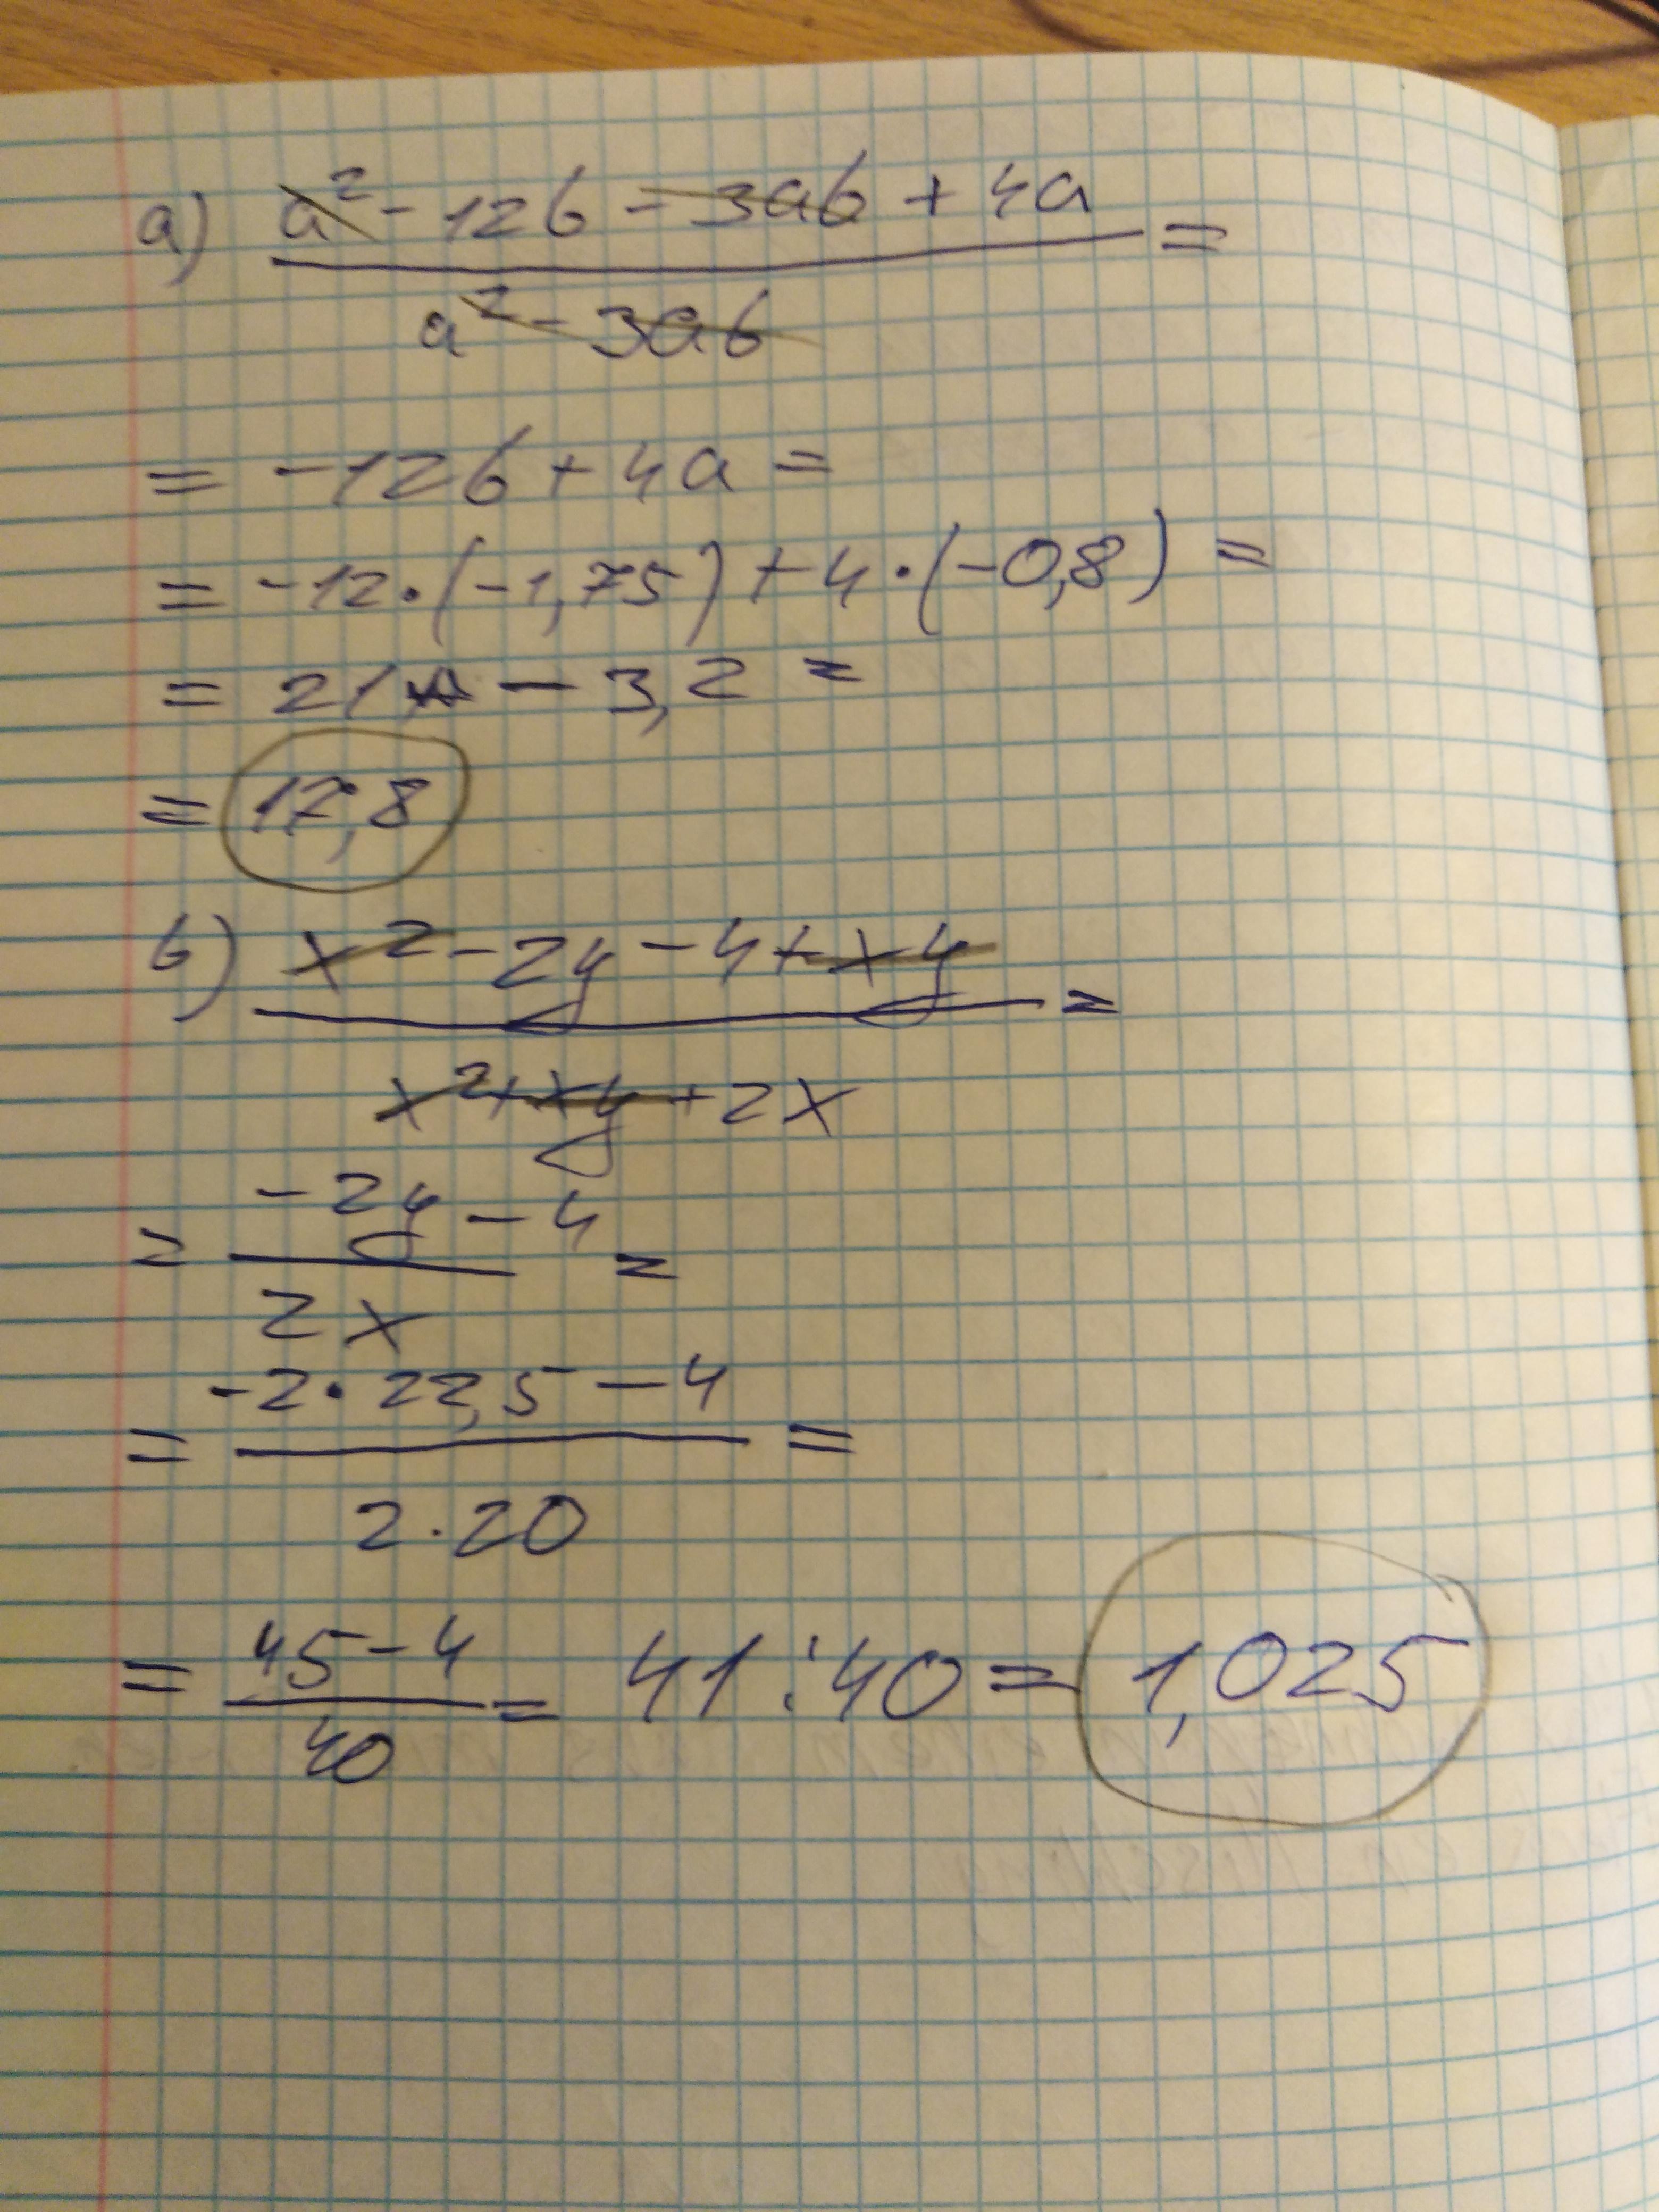 а) a² - 12b - 3ab + 4a =
a² - 3ab
= -12b + 4a =
= -12·(-1,75) + 4·(-0,8) =
= 21 - 3,2 =
= 17,8
б) x² - 2y - 4 + xy =
x² + xy + 2x
= -2y - 4 =
2x
= -2·22,5 - 4 =
2·20
= 45 - 4 = 41 : 40 = 1,025
40